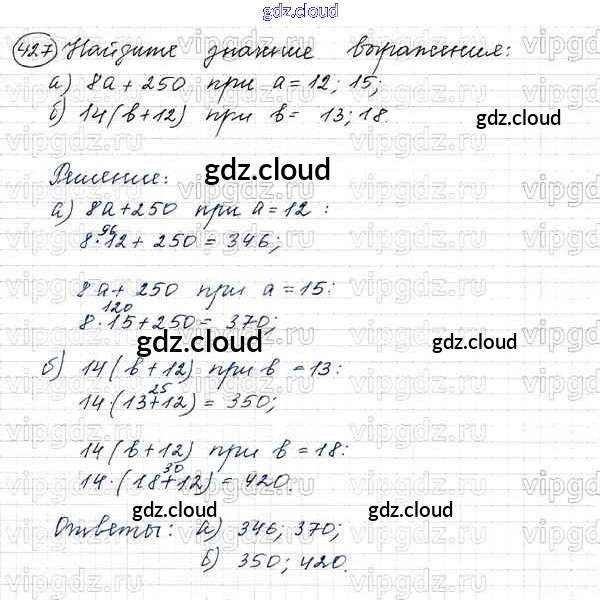 gdz.cloud
427 Найдите значение выражения:
а) 8a + 250 при a = 12; 15;
б) 14(b+12) при b = 13; 18.
gdz.cloud
Решение:
gdz.cloud
а) 8a+250 при a = 12 :
96
8·12 + 250 = 346;
8a + 250 при a = 15:
120
8·15+250 = 370;
gdz.cloud
gdz.cloud
б) 14(b + 12) при b = 13:
25
14·(13+12) = 350;
14(b+12) при b = 18:
30
14·(18+12) = 420.
gdz.cloud
gdz.cloud
Ответы: а) 346; 370;
б) 350; 420.
vipgdz.ru